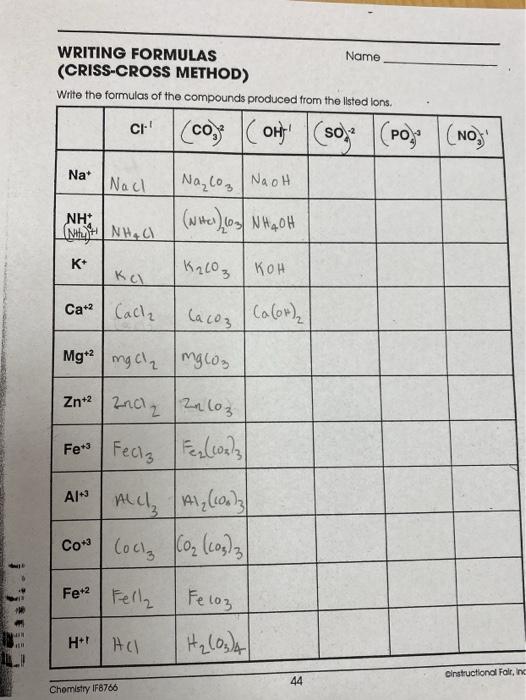 WRITING FORMULAS
(CRISS-CROSS METHOD)
Name
Write the formulas of the compounds produced from the listed ions.
Cl⁻¹ (CO₃)⁻² (OH)⁻¹ (SO₄)⁻² (PO₄)⁻³ (NO₃)⁻¹
Na⁺ Nacl Na₂CO₃ NaOH
NH₄⁺ (NH₄)⁺¹ NH₄Cl NH₄OH
K⁺ Kcl K₂CO₃ KOH
Ca⁺² Cacl₂ Caco₃ Ca(OH)₂
Mg⁺² mgcl₂ mgco₃
Zn⁺² Zncl₂ Znco₃
Fe⁺³ Fecl₃ Fe₂(co₃)₃
Al⁺³ Alcl₃ Al₂(co₃)₃
Co⁺³ Cocl₃ Co₂(co₃)₃
Fe⁺² Fecl₂ Feco₃
H⁺¹ Hcl
Chemistry IF8766
44
©Instructional Fair, Inc